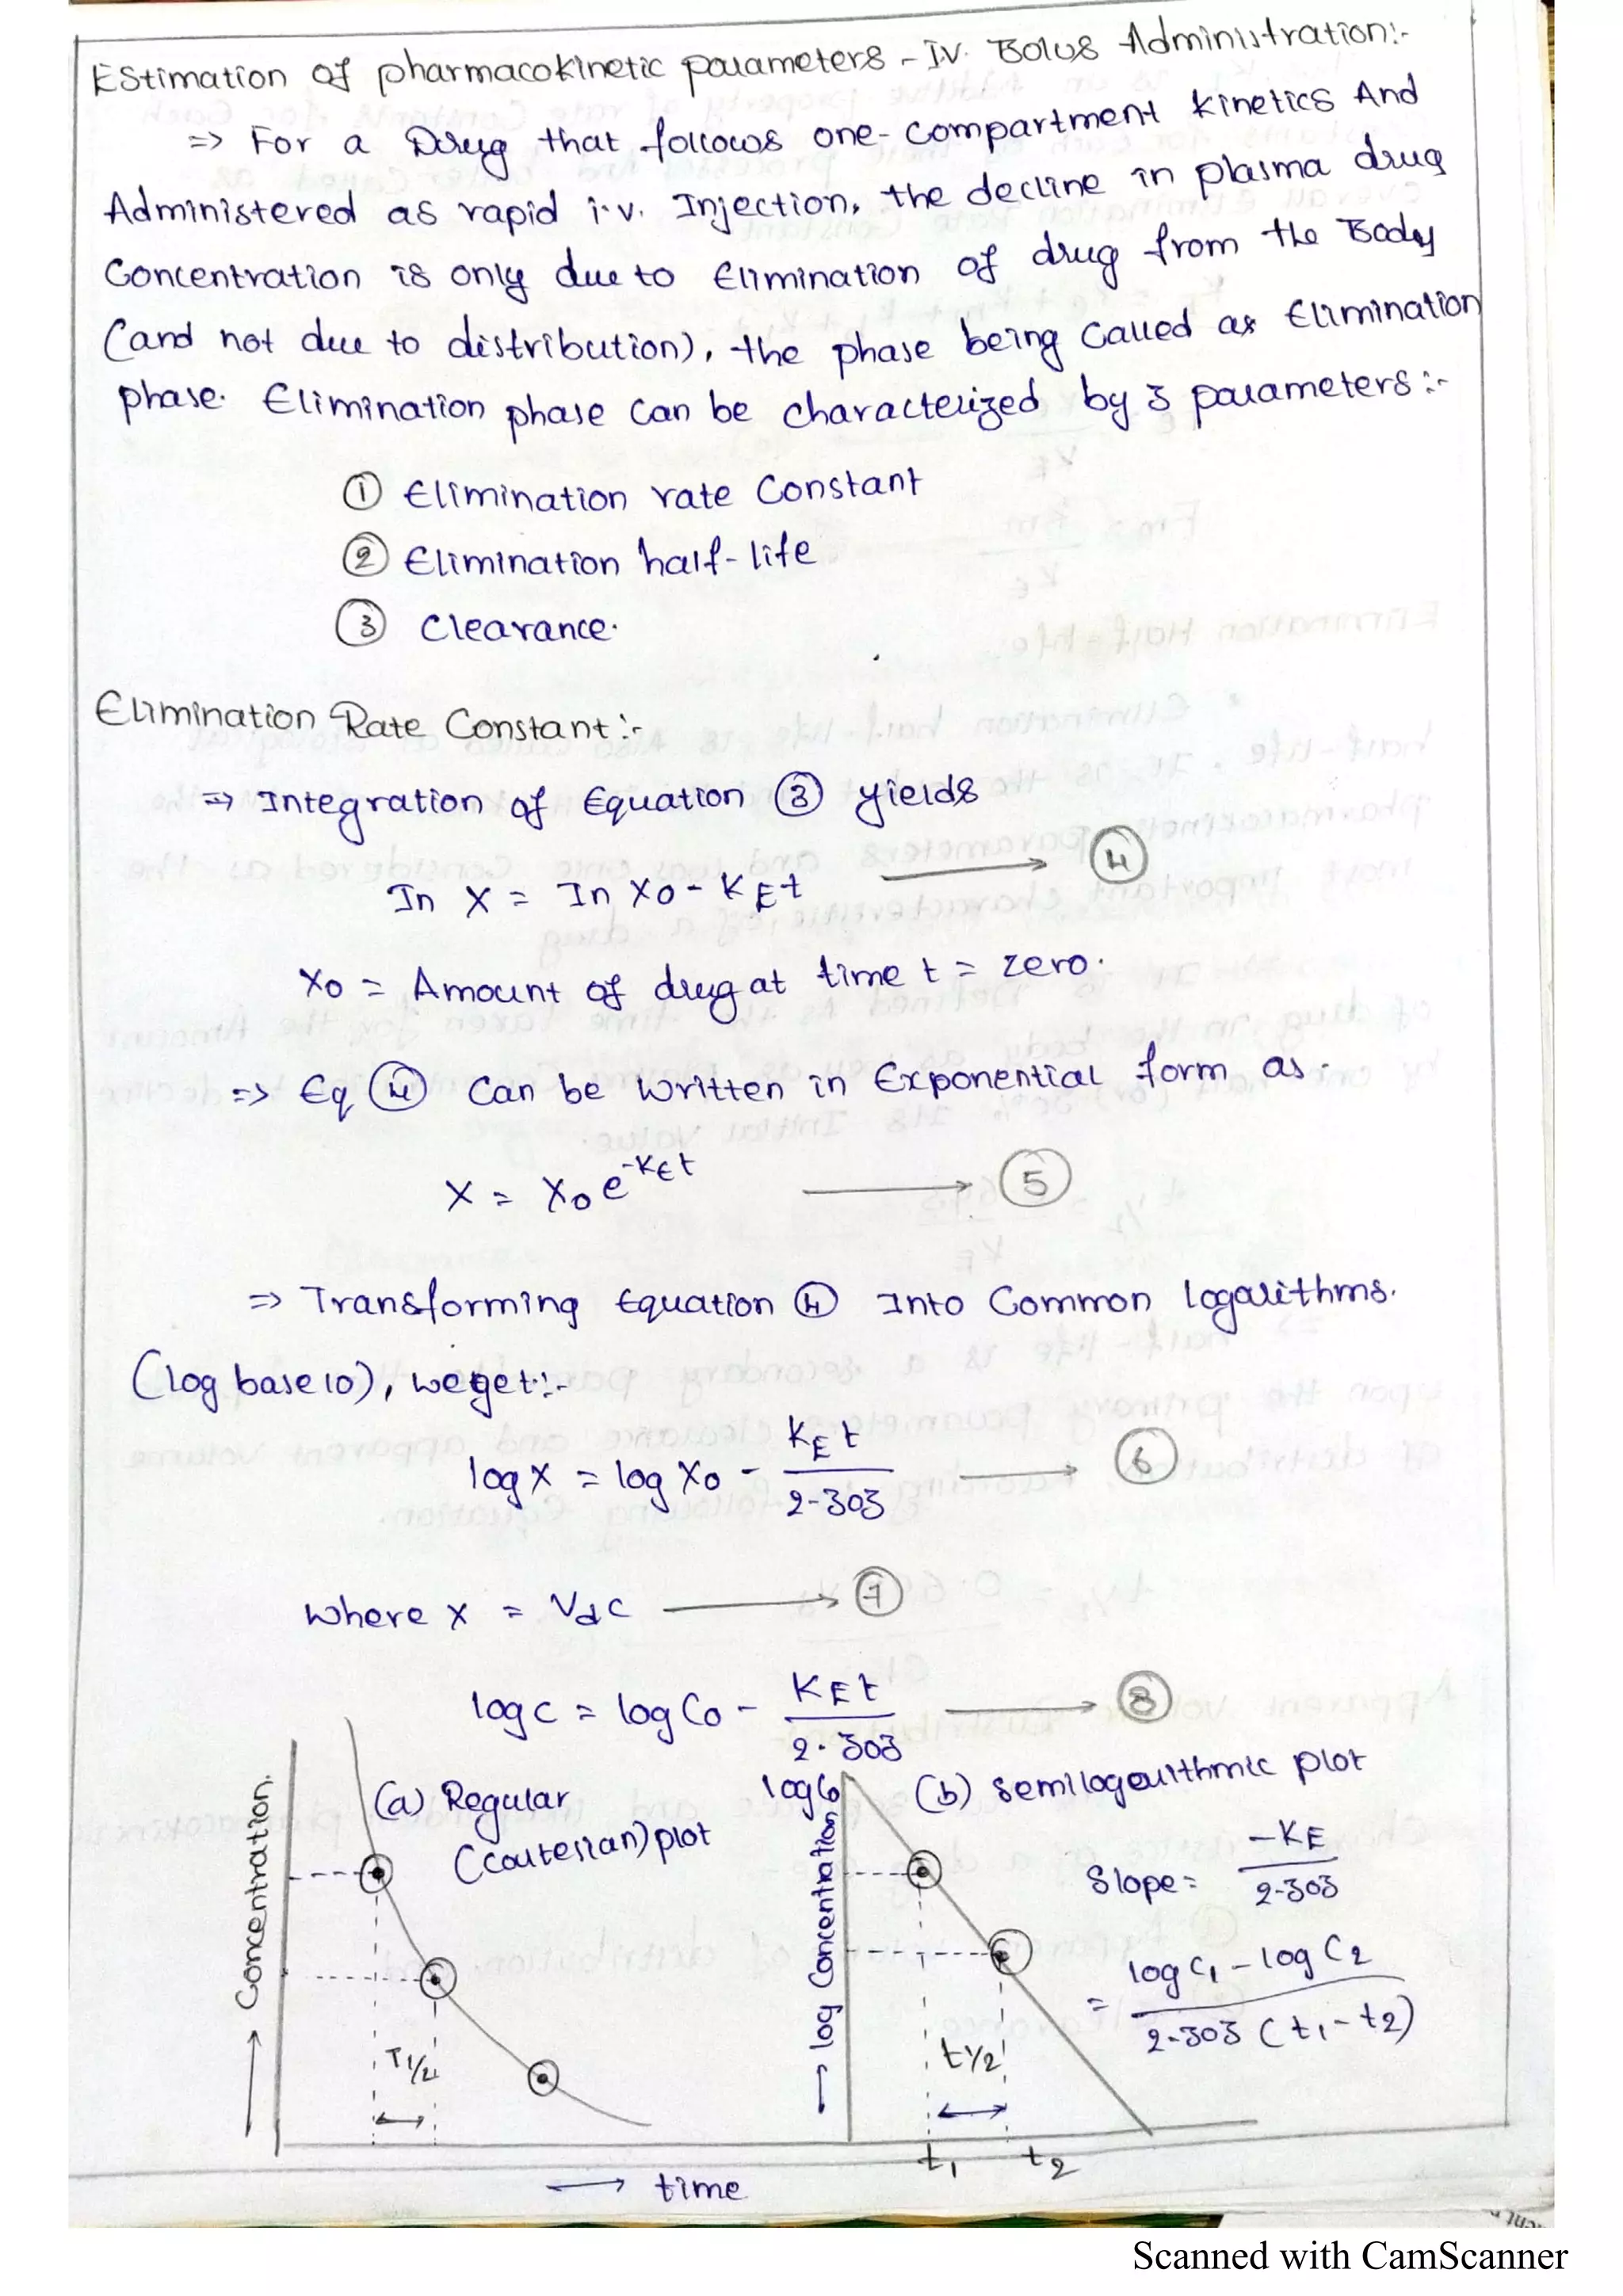 EStimation of pharmacokinetic parameters - I.V. Bolus Administration:-
=> For a Drug that follows one-compartment kinetics And
Administered as rapid i.v. Injection, the decline in plasma drug
Concentration is only due to Elimination of drug from the Body
(and not due to distribution), the phase being called as Elimination
phase. Elimination phase can be characterized by 3 parameters:-
① Elimination rate Constant
② Elimination half-life
③ Clearance.
Elimination Rate Constant:-
=> Integration of Equation ③ yields
In X = In X0 - KEt ⟶ ④
X0 = Amount of drug at time t = zero.
=> Eq ④ can be written in Exponential form as.
X = X0 e^-KEt ⟶ ⑤
=> Transforming Equation ④ Into Common logarithms.
(log base 10), weget:-
log X = log X0 - KE t / 2.303 ⟶ ⑥
Where X = Vd C ⟶ ⑦
log C = log C0 - KE t / 2.303 ⟶ ⑧
(a) Regular
(Cartesian) plot
→ Concentration.
T1/2
→ time
log C0
(b) Semilogarithmic plot
→ log Concentration
Slope = -KE / 2.303
= log C1 - log C2 / 2.303 (t1 - t2)
t1/2
t1 t2
Scanned with CamScanner